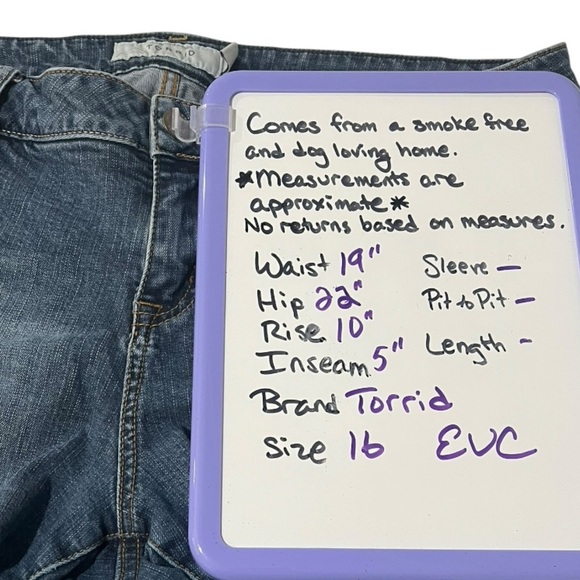 TORRID
Comes from a smoke free
and dog loving home.
*Measurements are
approximate*
No returns based on measures.
Waist 19"
Sleeve —
Hip 22"
Pit to Pit —
Rise 10"
Length -
Inseam 5"
Brand Torrid
Size 16
EUC